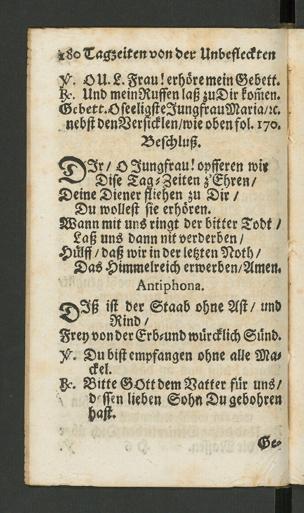 180 Tagzeiten von der Unbefleckten
℣. O U. L. Frau! erhöre mein Gebett.
℟. Und mein Ruffen laß zu Dir kom̃en.
Gebett. O seeligste Jungfrau Maria/ ꝛc.
nebst den Versicklen/ wie oben fol. 170.
Beschluß.
DIr/ O Jungfrau! opfferen wir
Dise Tag-Zeiten z'Ehren/
Deine Diener fliehen zu Dir/
Du wollest sie erhören.
Wann mit uns ringt der bitter Todt/
Laß uns dann nit verderben/
Hülff/ daß wir in der letzten Noth/
Das Himmelreich erwerben/ Amen.
Antiphona.
DIß ist der Staab ohne Ast/ und
Rind/
Frey von der Erb- und würcklich Sünd.
℣. Du bist empfangen ohne alle Ma-
ckel.
℟. Bitte GOtt dem Vatter für uns/
dessen lieben Sohn Du gebohren
hast.
Ge-